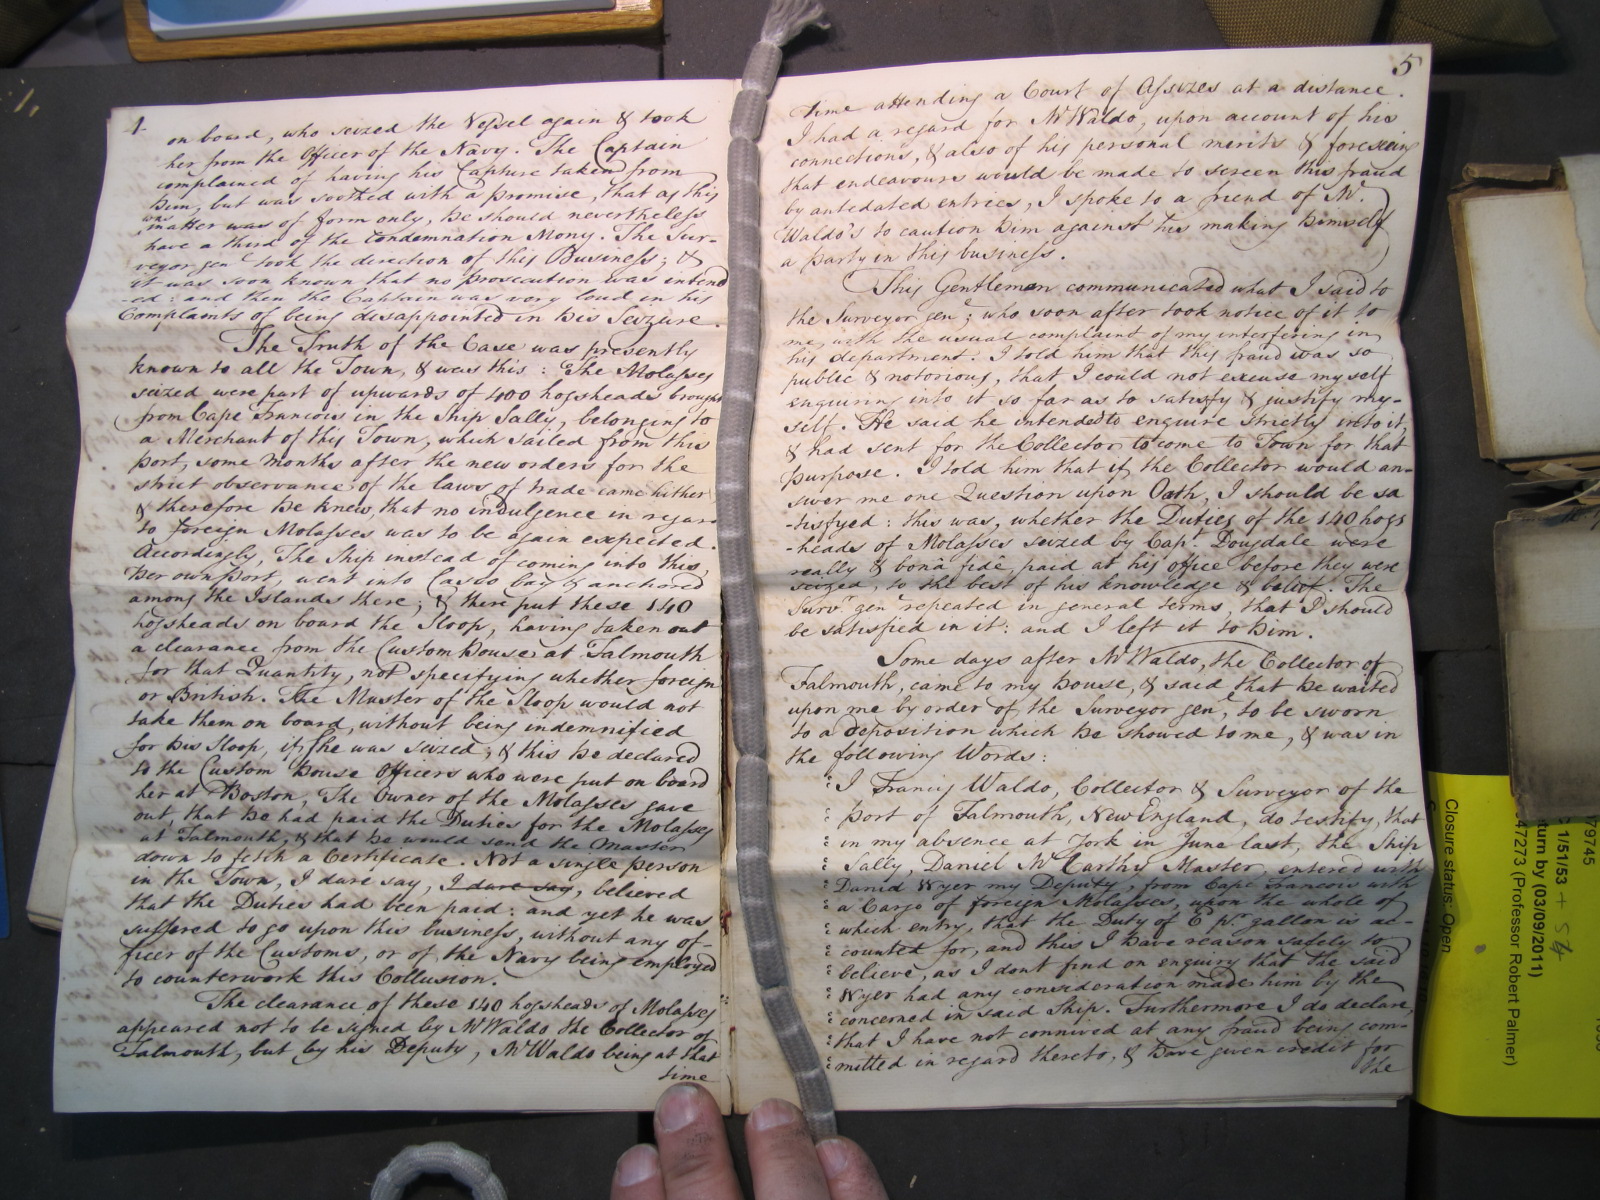 4
on board, who seized the Vessel again & took
her from the Officer of the Navy. The Captain
complained of having his Capture taken from
him, but was soothed with a promise, that as this
was
matter was of form only, he should nevertheless
have a third of the Condemnation Mony. The Sur-
veyor genl took the direction of this Business; &
it was soon known that no prosecution was intend
-ed: and then the Captain was very loud in his
Complaints of being disappointed in his Seizure.
The Truth of the Case was presently
known to all the Town, & was this: The Molasses
seized were part of upwards of 400 hogsheads brought
from Cape Francois in the Ship Sally, belonging to
a Merchant of this Town, which sailed from this
port, some months after the new orders for the
strict observance of the laws of trade came hither
& therefore he knew, that no indulgence in regard
to foreign Molasses was to be again expected.
Accordingly, The Ship instead of coming into this,
her own port, went into Casco bay & anchored
among the Islands there; & there put these 140
hogsheads on board the Sloop, having taken out
a clearance from the Custom house at Falmouth
for that Quantity, not specifying whether foreign
or British. The Master of the Sloop would not
take them on board, without being indemnified
for his Sloop, if she was seized; & this he declared
to the Custom house Officers who were put on board
her at Boston, The Owner of the Molasses gave
out, that he had paid the Duties for the Molasses
at Falmouth, & that he would send the Master
down to fetch a Certificate. Not a single person
in the Town, I dare say, I dare say, believed
that the Duties had been paid: and yet he was
suffered to go upon this business, without any of-
ficer of the Customs, or of the Navy being employed
to counterwork this Collusion.
The clearance of these 140 hogsheads of Molasses
appeared not to be signed by Mr Waldo the Collector of
Falmouth, but by his Deputy, Mr Waldo being at that
time
5
time attending a Court of Assizes at a distance.
I had a regard for Mr Waldo, upon account of his
connections, & also of his personal merits & foreseeing
that endeavours would be made to screen this fraud
by antedated entries, I spoke to a friend of Mr.
Waldo's to caution him against his making himself
a party in this business.
This Gentleman communicated what I said to
the Surveyor genl; who soon after took notice of it to
me, with the usual complaint of my interfering in
his department: I told him that this fraud was so
public & notorious, that I could not excuse myself
enquiring into it so far as to satisfy & justify my-
self. He said he intended to enquire strictly into it,
& had sent for the Collector to come to Town for that
purpose. I told him that if the Collector would an-
swer me one Question upon Oath, I should be sa
-tisfyed: this was, whether the Duties of the 140 hogs
-heads of Molasses seized by Capt. Dougdale were
really & bonâ fide, paid at his office before they were
seized, to the best of his knowledge & belief. The
Survr. genl repeated in general terms, that I should
be satisfied in it: and I left it to him.
Some days after Mr Waldo, the Collector of
Falmouth, came to my house, & said that he waited
upon me by order of the Surveyor genl, to be sworn
to a deposition which he showed to me, & was in
the following Words:
I Francis Waldo, Collector & Surveyor of the
port of Falmouth, New England, do testify, that
in my absence at York in June last, the Ship
Sally, Daniel McCarthy Master, entered with
Daniel Wyer my Deputy, from Cape Francois with
a Cargo of foreign Molasses, upon the whole of
which entry, that the Duty of 6 pr gallon is ac-
counted for, and this I have reason safely to
believe, as I dont find on enquiry that the said
Wyer had any consideration made him by the
concerned in said Ship. Furthermore I do declare,
that I have not connived at any fraud being com-
mitted in regard thereto, & have given credit for
the
Closure status: Open
1/51/53 + 54
turn by (03/09/2011)
47273 (Professor Robert Palmer)
79745